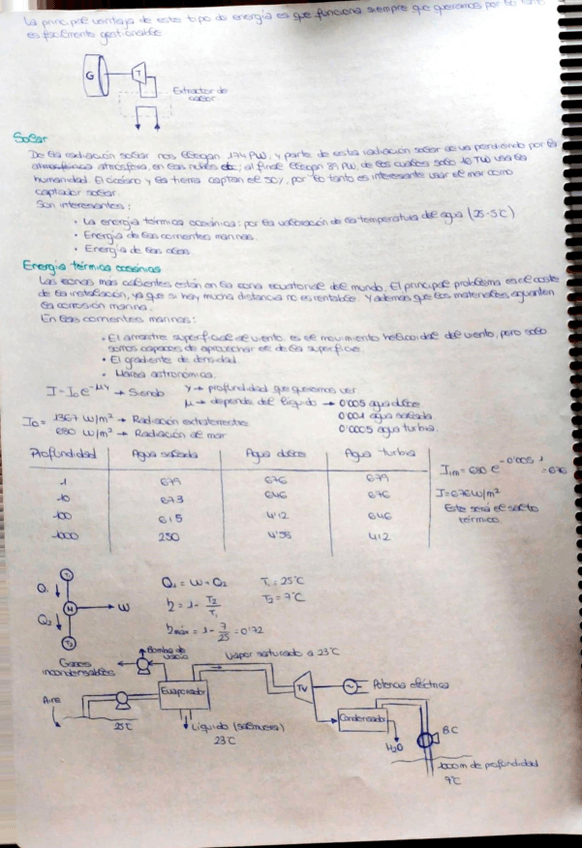 La principal ventaja de este tipo de energía es que funciona siempre que queramos por lo tanto
es facilmente gestionable
G
T
Extractor de
calor
Solar
De la radiación solar nos llegan 174 PW, y parte de esta radiación solar se va perdiendo por la
atmosférica atmósfera, en las nubes etc; al final llegan 89 PW, de los cuales solo 16 TW usa la
humanidad. El océano y la tierra captan el 50%, por lo tanto es interesante usar el mar como
captador solar.
Son interesantes:
• La energía térmica oceánica: por la variación de la temperatura del agua (25-5°C)
• Energía de las corrientes marinas.
• Energía de las olas.
Energía térmica oceánica
Las zonas más calientes están en la zona ecuatorial del mundo. El principal problema es el coste
de la instalación, ya que si hay mucha distancia no es rentable. Y además que los materiales aguanten
la corrosión marina.
En las corrientes marinas:
• El arrastre superficial del viento, es el movimiento helicoidal del viento, pero solo
somos capaces de aprovechar el de la superficie.
• El gradiente de densidad.
• Marea astronómica.
I = I₀ e^-μy → Siendo y → profundidad que queremos ver
μ → depende del líquido → 0'005 agua dulce
0'001 agua salada
0'0005 agua turbia.
I₀ = 1367 W/m² → Radiación extraterrestre
680 W/m² → Radiación al mar
Profundidad Agua salada Agua dulce Agua turbia
-1 679 676 679
-10 673 646 676
-100 615 4'12 646
-1000 250 4'58 412
I₁m = 680 e^-0'005·1 = 676
I = 676 W/m²
Este será el salto
térmico.
T₁
Q₁
M → W
Q₂
T₂
Q₁ = W + Q₂ T₁ = 25°C
η = 1 - T₂/T₁ T₂ = 7°C
ηmáx = 1 - 7/25 = 0'72
Bomba de
vacío
Gases
incondensables
Vapor saturado a 23°C
Aire
25°C
Evaporador
Líquido (salmuera)
23°C
TV
Potencia eléctrica
Condensador
H₂O
BC
-1000m de profundidad
9°C